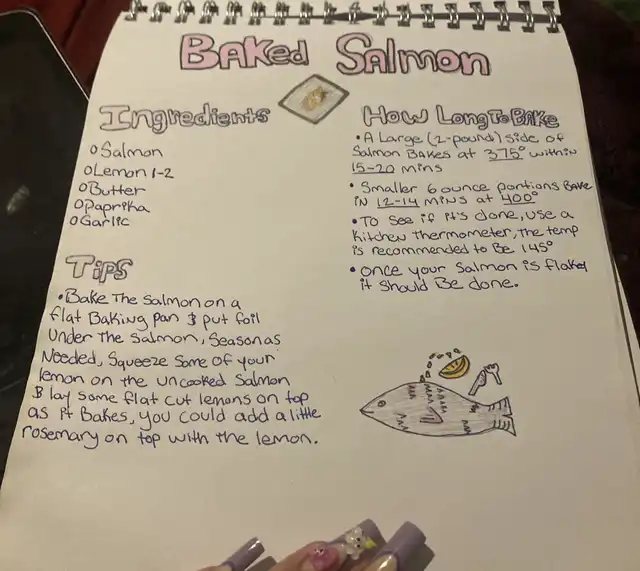 Baked Salmon
Ingredients
o Salmon
o Lemon 1-2
o Butter
o Paprika
o Garlic
Tips
• Bake The Salmon on a
flat Baking pan & put foil
under the salmon, season as
needed, squeeze some of your
lemon on the uncooked salmon
& lay some flat cut lemons on top
as it bakes, you could add a little
rosemary on top with the lemon.
How Long To Bake
• A Large (2-pound) side of
Salmon Bakes at 375° within
15-20 mins
• Smaller 6 ounce portions Bake
in 12-14 mins at 400°
• To see if it's done, use a
kitchen thermometer, the temp
is recommended to be 145°
• once your salmon is flakey
it should Be done.